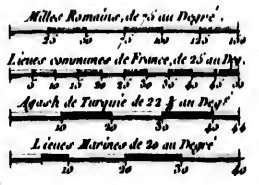 Milles Romains, de 75 au Degré.
25 50 75 100 125 150
Lieues communes de France, de 25 au Deg.
5 10 15 20 25 30 35 40 45 50
Agash de Turquie de 22 au Degré
10 20 30 40 45
Lieues Marines de 20 au Degré
10 20 30 40